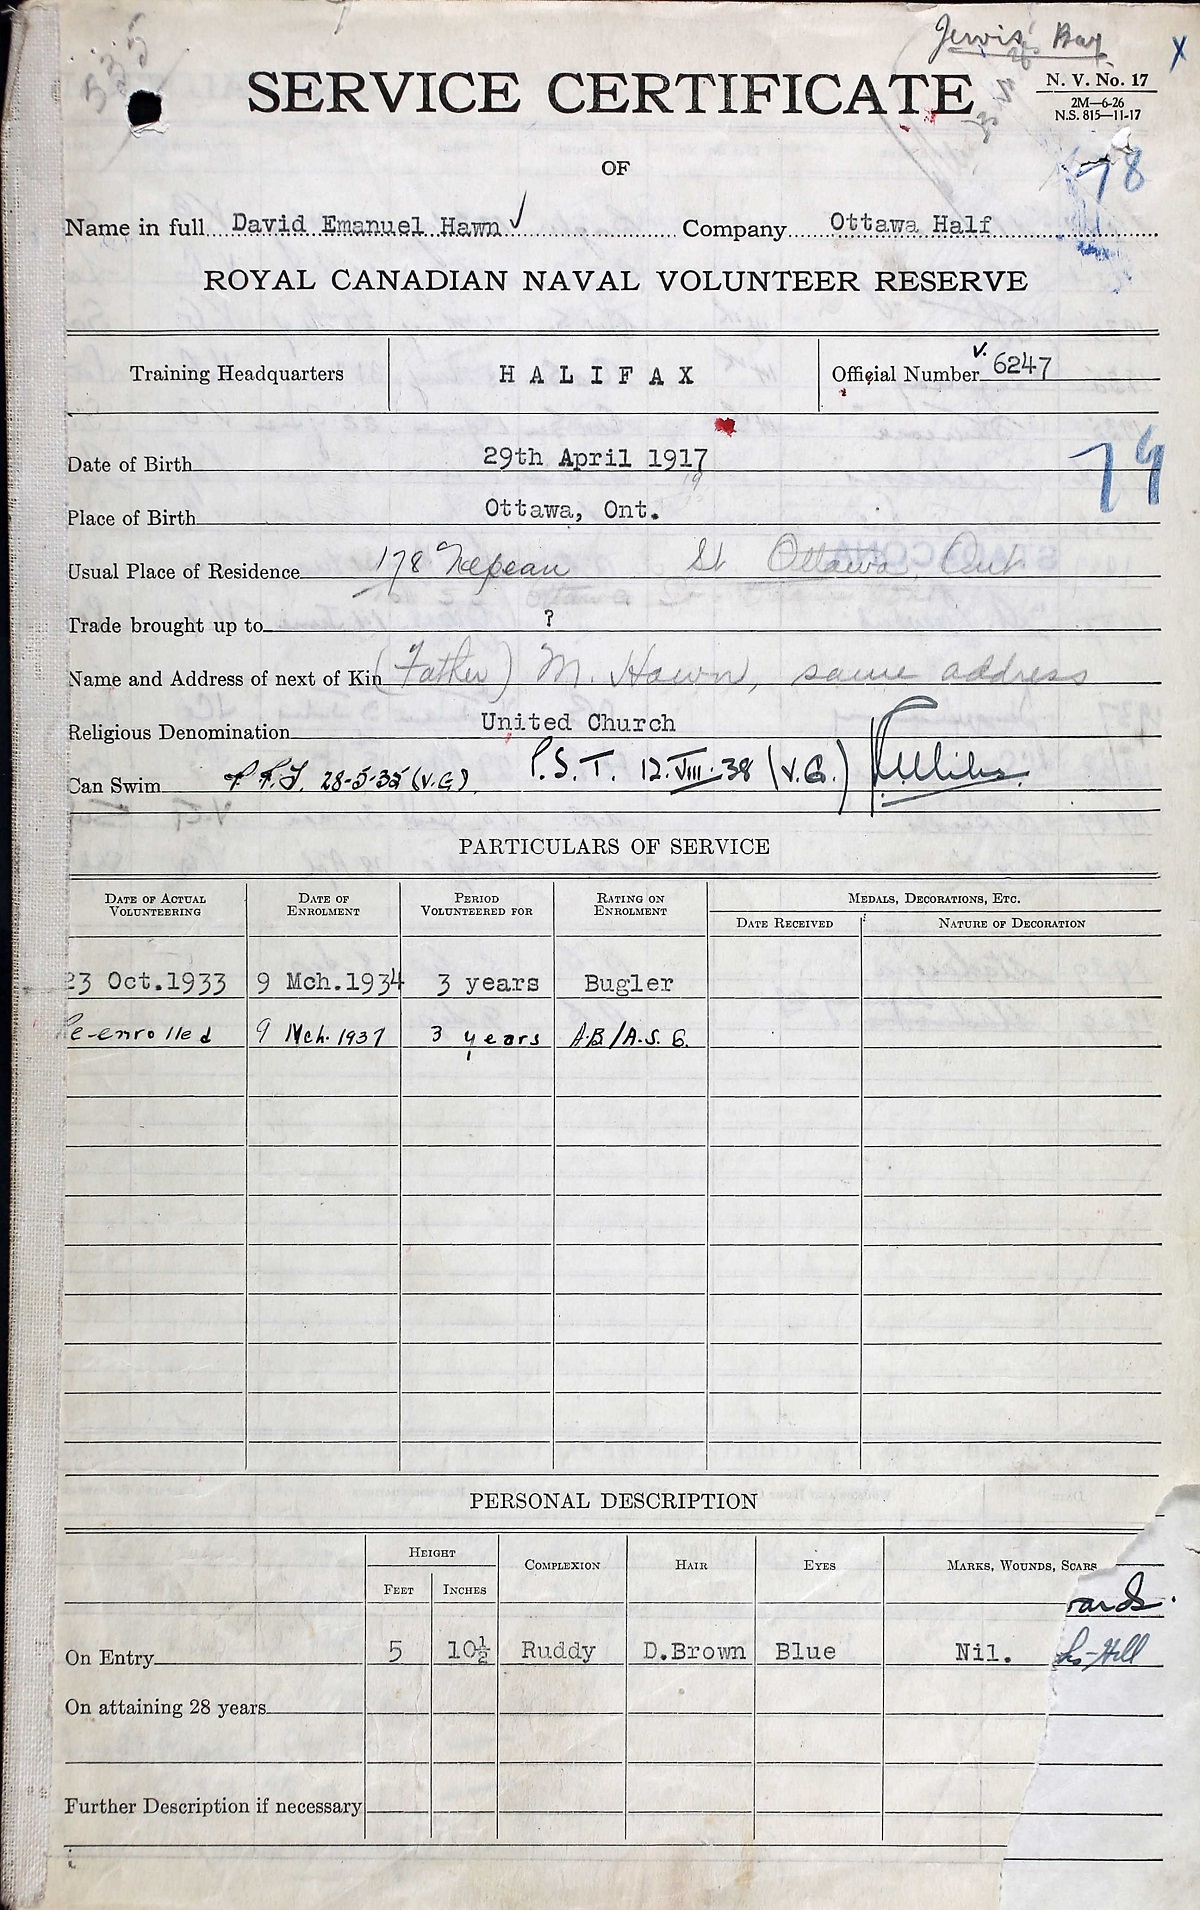 Jervis Bay
X
535
SERVICE CERTIFICATE
N. V. No. 17
2M—6-26
N.S. 815—11-17
OF
78
Name in full David Emanuel Hawn Company Ottawa Half
ROYAL CANADIAN NAVAL VOLUNTEER RESERVE
Training Headquarters HALIFAX Official Number V. 6247
Date of Birth 29th April 1917
19
79
Place of Birth Ottawa, Ont.
Usual Place of Residence 178 Nepean St Ottawa, Ont
Trade brought up to ?
Name and Address of next of Kin (Father) M. Hawn, same address
Religious Denomination United Church
Can Swim 28-5-35 (V.G). P.S.T. 12.VIII.38 (V.G.)
PARTICULARS OF SERVICE
DATE OF ACTUAL VOLUNTEERING DATE OF ENROLMENT PERIOD VOLUNTEERED FOR RATING ON ENROLMENT MEDALS, DECORATIONS, ETC.
DATE RECEIVED NATURE OF DECORATION
23 Oct.1933 9 Mch.1934 3 years Bugler
Re-enrolled 9 Mch. 1937 3 years A.B/A.S.G.
PERSONAL DESCRIPTION
HEIGHT COMPLEXION HAIR EYES MARKS, WOUNDS, SCARS
FEET INCHES
On Entry 5 10½ Ruddy D.Brown Blue Nil.
On attaining 28 years
Further Description if necessary